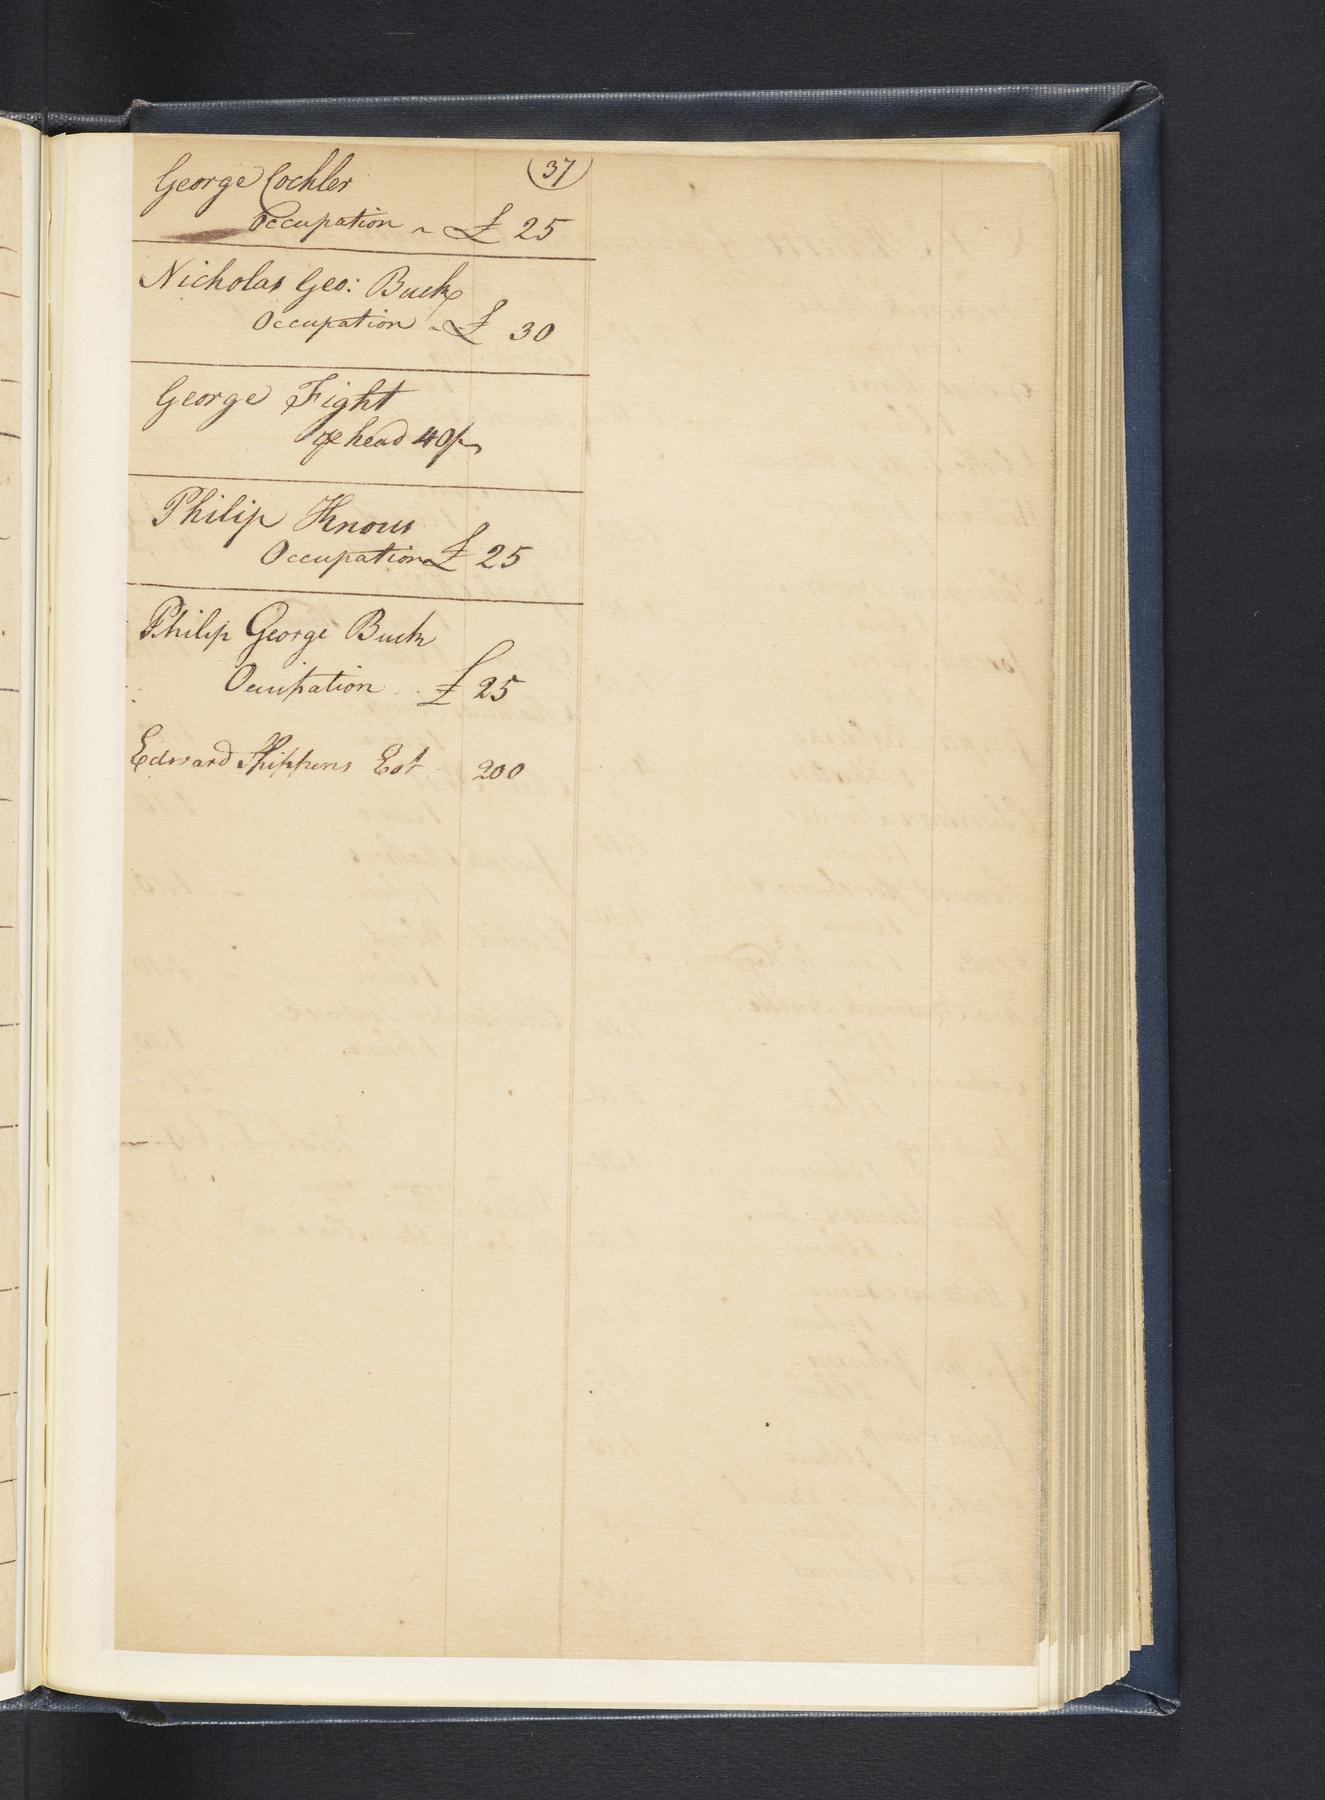 37
George Cochler
Occupation - £ 25
Nicholas Geo: Buck
Occupation - £ 30
George Fight
⅌ head 40/
Philip Knous
Occupation £ 25
Philip George Buck
Occupation £ 25
Edward Shippens Est 200